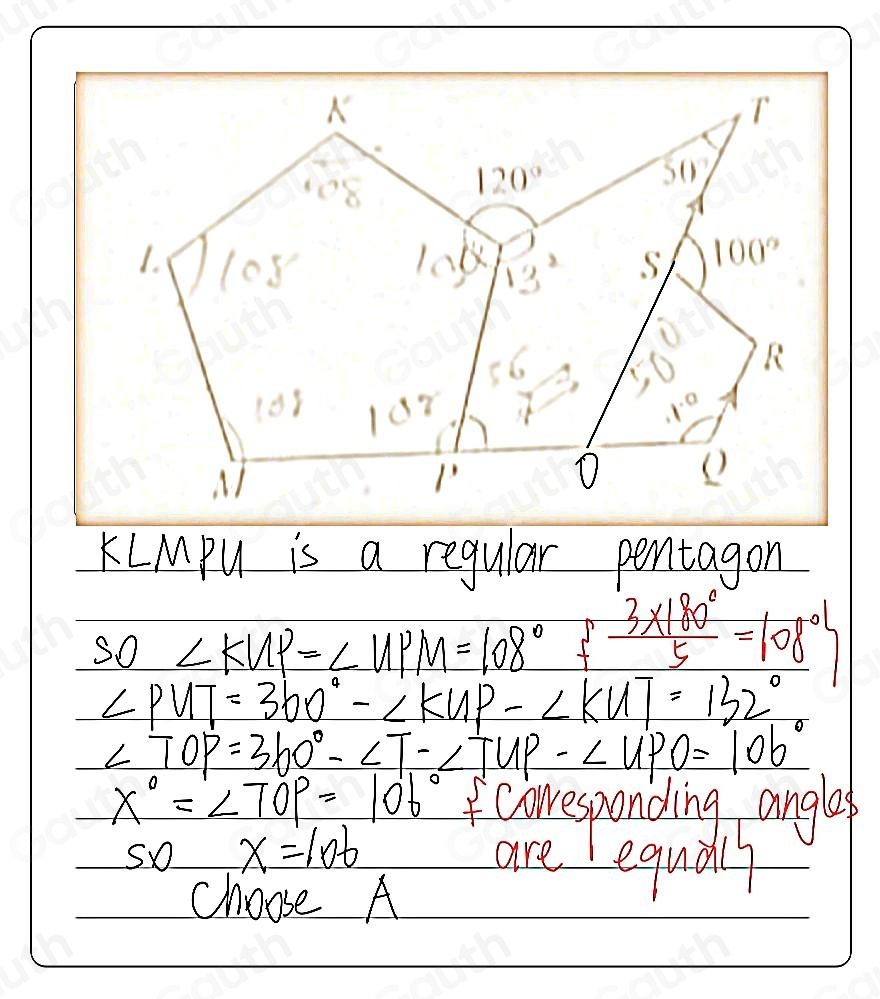 K
T
120°
50°
108
L
108
108
132
S
100°
R
56
50
x°
108
108
M
P
O
Q
KLMPU is a regular pentagon
so ∠KUP=∠UPM=108° {3×180°/5=108°}
∠PUT=360°-∠KUP-∠KUT=132°
∠TOP=360°-∠T-∠TUP-∠UPO=106°
x°=∠TOP=106° {corresponding angles
so x=106 are equal}
Choose A